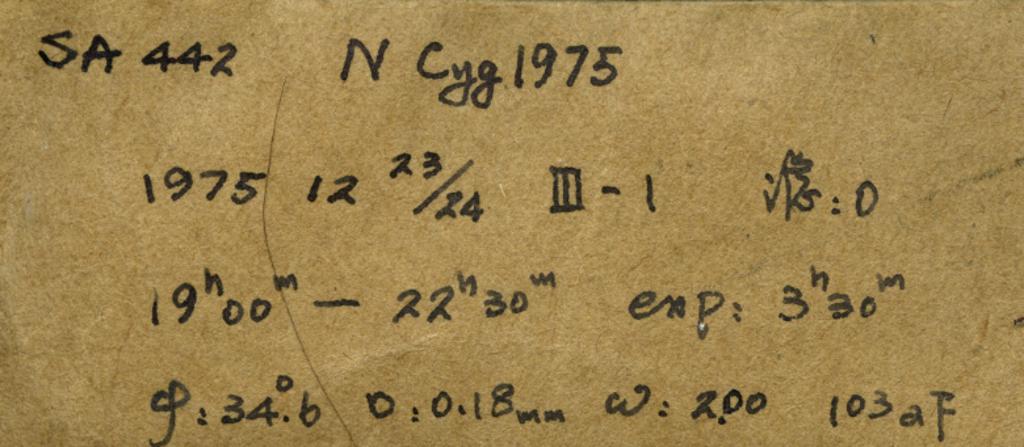 SA 442 N Cyg 1975
1975 12 23/24 III - 1 : 0
19ʰ00ᵐ — 22ʰ30ᵐ exp: 3ʰ30ᵐ
φ: 34°.6 D: 0.18mm ω: 2.00 103aF